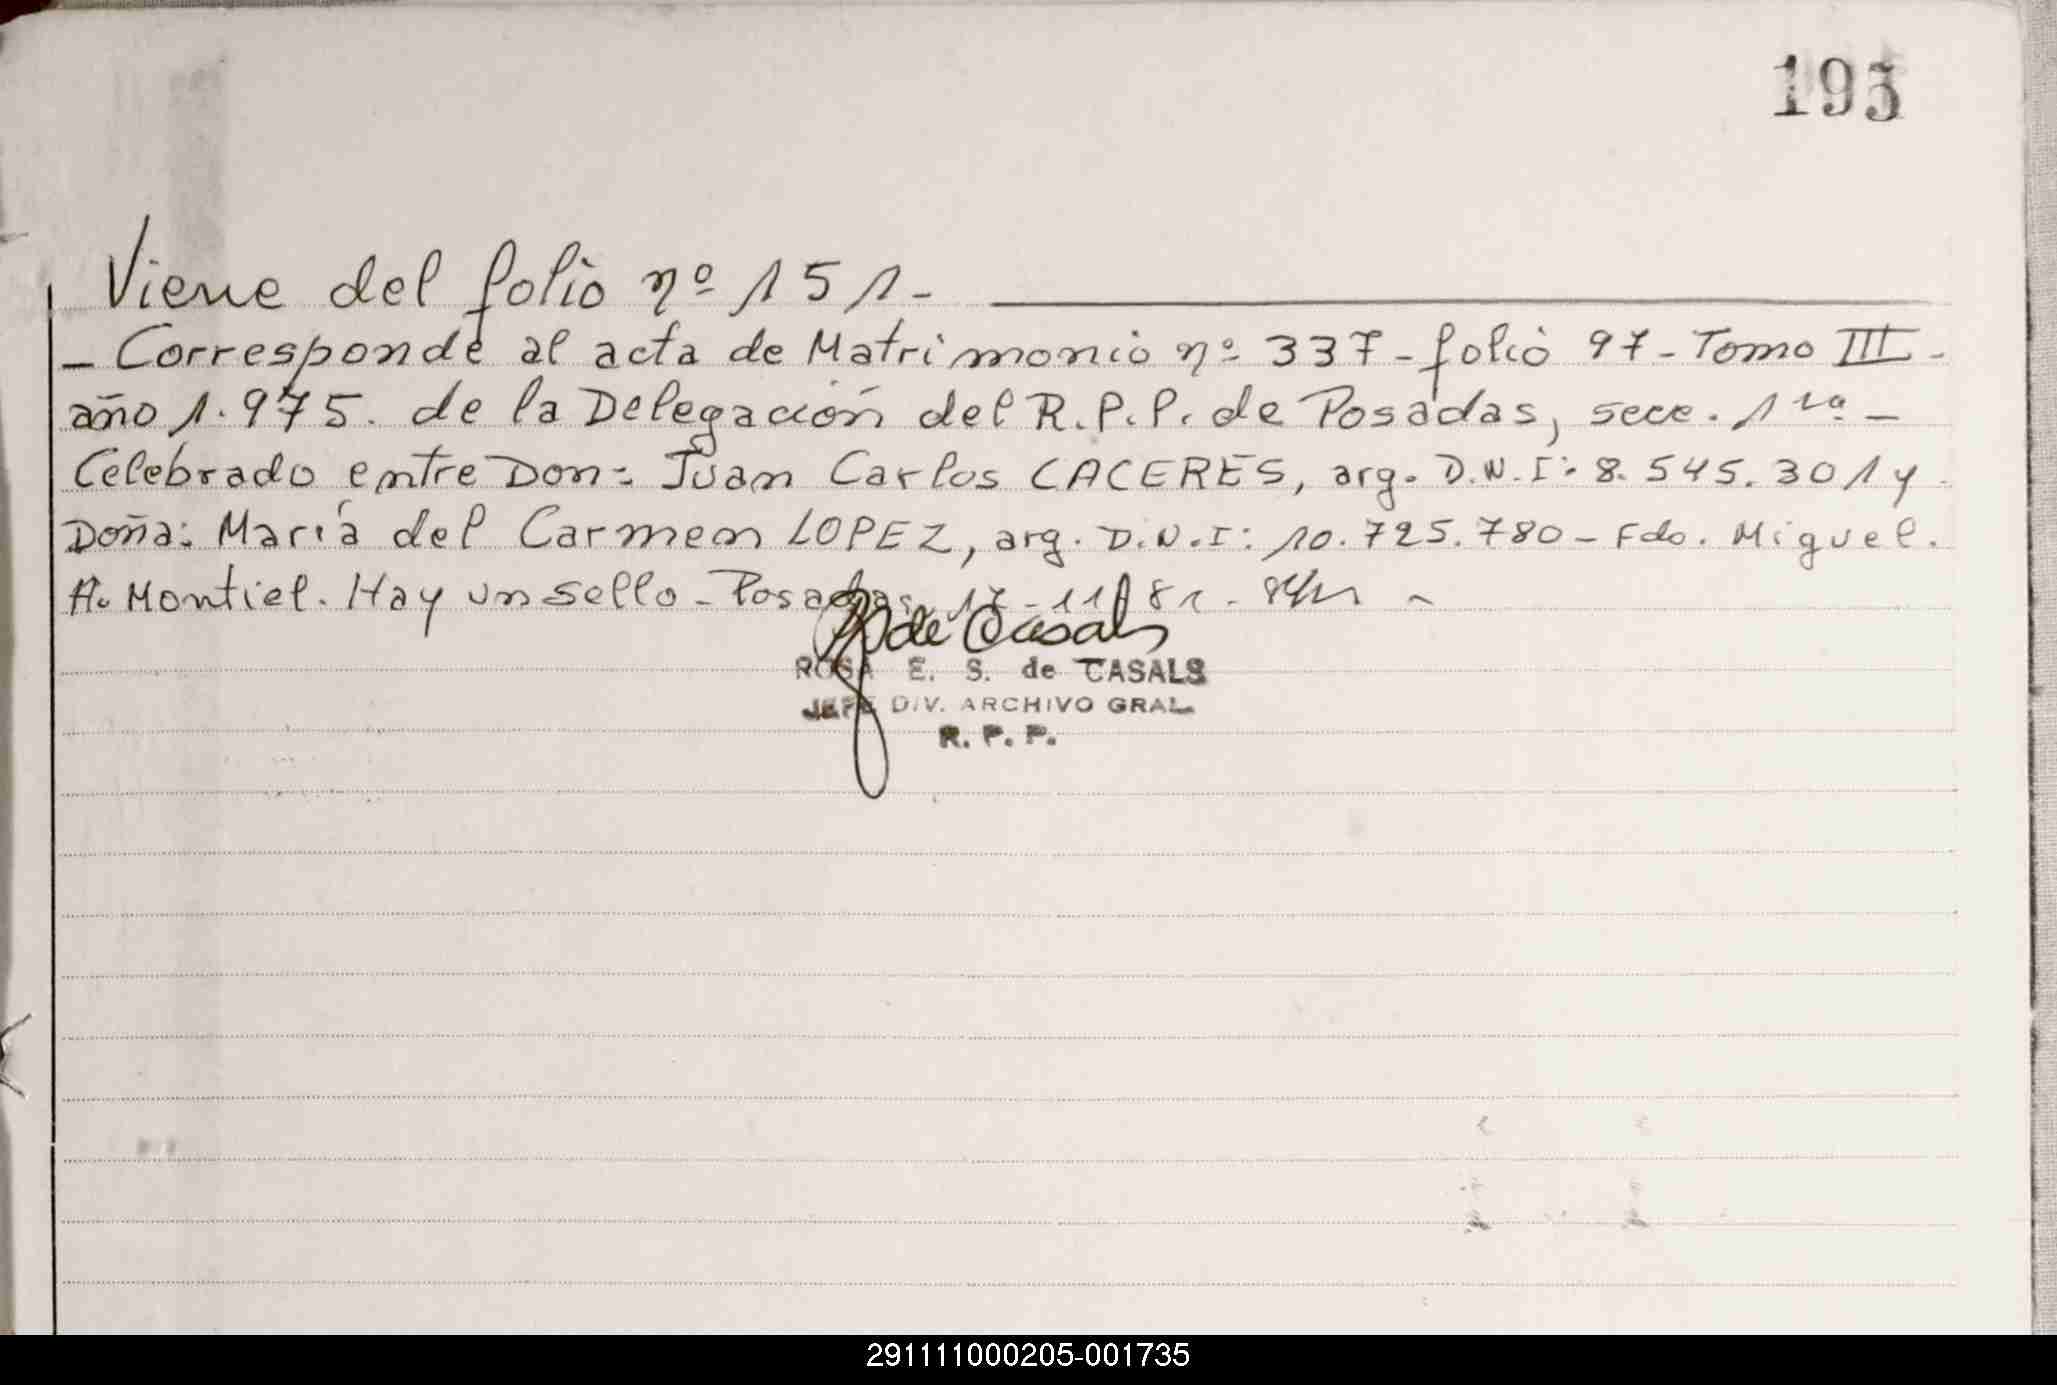 193
Viene del folio nº 151-
- Corresponde al acta de Matrimonio nº 337- folio 97- Tomo III-
año 1.975. de la Delegación del R.P.P. de Posadas, secc. 1ra. -
Celebrado entre Don: Juan Carlos CACERES, arg. D.N.I: 8.545.301 y
Doña: María del Carmen LOPEZ, arg. D.N.I: 10.725.780- Fdo. Miguel.
A. Montiel. Hay un sello- Posadas, 17-11-81-
de Casals
ROSA E. S. de CASALS
JEFE DIV. ARCHIVO GRAL.
R. P. P.
291111000205-001735